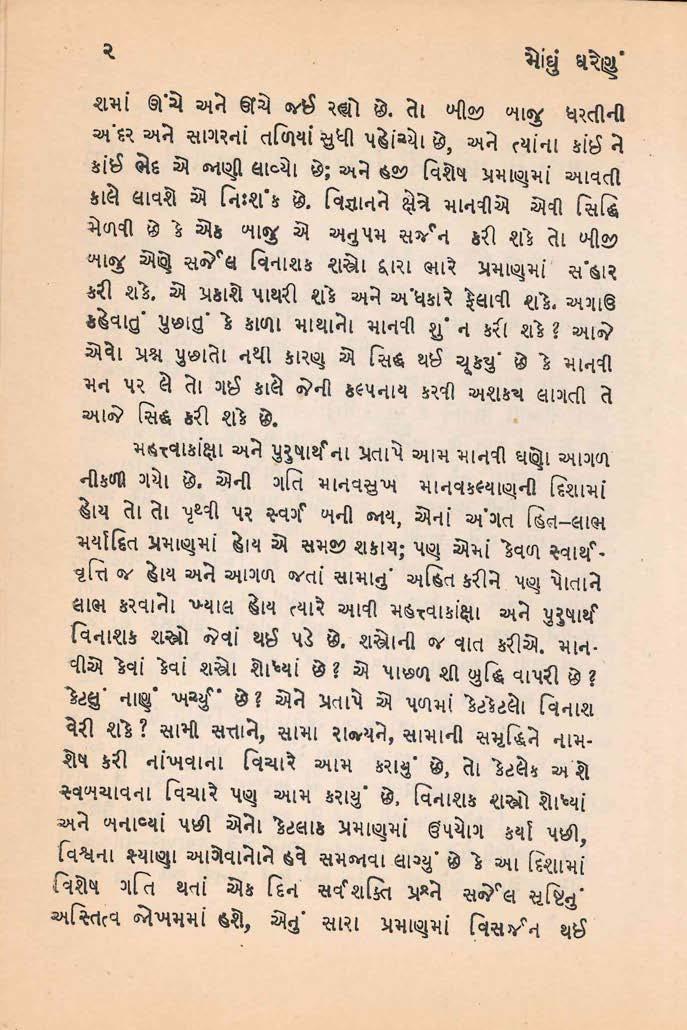 ૨
મોંઘું ઘરેણું
શમાં ઊંચે અને ઊંચે જઈ રહ્યો છે. તો બીજી બાજુ ધરતીની
અંદર અને સાગરનાં તળિયાં સુધી પહોંચ્યો છે, અને ત્યાંના કાંઈ ને
કાંઈ ભેદ એ જાણી લાવ્યો છે; અને હજી વિશેષ પ્રમાણમાં આવતી
કાલે લાવશે એ નિઃશંક છે. વિજ્ઞાનને ક્ષેત્રે માનવીએ એવી સિદ્ધિ
મેળવી છે કે એક બાજુ એ અનુપમ સર્જન કરી શકે તો બીજી
બાજુ એણે સર્જેલ વિનાશક શસ્ત્રો દ્વારા ભારે પ્રમાણમાં સંહાર
કરી શકે. એ પ્રકાશે પાથરી શકે અને અંધકારે ફેલાવી શકે. અગાઉ
કહેવાતું પુછાતું કે કાળા માથાનો માનવી શું ન કરી શકે? આજે
એવો પ્રશ્ન પુછાતો નથી કારણ એ સિદ્ધ થઈ ચૂકયું છે કે માનવી
મન પર લે તો ગઈ કાલે જેની કલ્પનાય કરવી અશકય લાગતી તે
આજે સિદ્ધ કરી શકે છે.
મહત્ત્વાકાંક્ષા અને પુરુષાર્થના પ્રતાપે આમ માનવી ઘણો આગળ
નીકળી ગયો છે. એની ગતિ માનવસુખ માનવકલ્યાણની દિશામાં
હોય તો તો પૃથ્વી પર સ્વર્ગ બની જાય, એનાં અંગત હિત–લાભ
મર્યાદિત પ્રમાણમાં હોય એ સમજી શકાય; પણ એમાં કેવળ સ્વાર્થ-
વૃત્તિ જ હોય અને આગળ જતાં સામાનું અહિત કરીને પણ પોતાને
લાભ કરવાનો ખ્યાલ હોય ત્યારે આવી મહત્ત્વાકાંક્ષા અને પુરુષાર્થ
વિનાશક શસ્ત્રો જેવાં થઈ પડે છે. શસ્ત્રોની જ વાત કરીએ. માન-
વીએ કેવાં કેવાં શસ્ત્રો શોધ્યાં છે? એ પાછળ શી બુદ્ધિ વાપરી છે?
કેટલું નાણું ખર્ચ્યું છે? એને પ્રતાપે એ પળમાં કેટકેટલો વિનાશ
વેરી શકે? સામી સત્તાને, સામા રાજ્યને, સામાની સમૃદ્ધિને નામ-
શેષ કરી નાંખવાના વિચારે આમ કરાયું છે, તો કેટલેક અંશે
સ્વબચાવના વિચારે પણ આમ કરાયું છે. વિનાશક શસ્ત્રો શોધ્યાં
અને બનાવ્યાં પછી એનો કેટલાક પ્રમાણમાં ઉપયોગ કર્યા પછી,
વિશ્વના શ્યાણા આગેવાનોને હવે સમજાવા લાગ્યું છે કે આ દિશામાં
વિશેષ ગતિ થતાં એક દિન સર્વશક્તિ પ્રશ્ને સર્જેલ સૃષ્ટિનું
અસ્તિત્વ જોખમમાં હશે, એનું સારા પ્રમાણમાં વિસર્જન થઈ